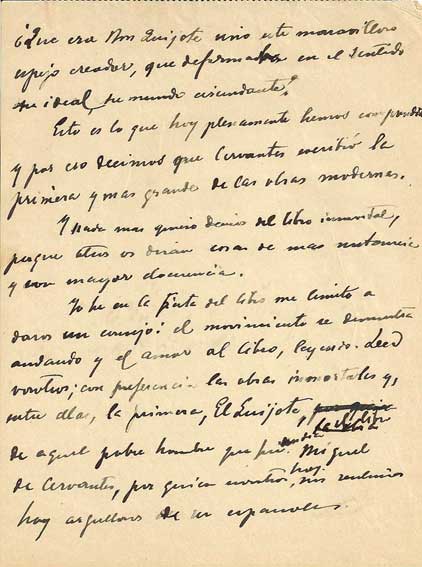 ¿Que era Don Quijote sino este maravilloso
espejo creador, que deformaba en el sentido
su ideal, su mundo circundante?
Esto es lo que hoy plenamente hemos comprendido
y por eso decimos que Cervantes escribió la
primera y mas grande de las obras modernas.
Y nada mas quiero deciros del libro inmortal,
porque otros os dirán cosas de mas sustancia
y con mayor docencia.
Yo en la fiesta del libro me limito a
daros un consejo: el movimiento se demuestra
andando y el amor al libro, leyendo. Leed
vosotros; con preferencia las obras inmortales y,
entre ellas, la primera, El Quijote,
de aquel pobre hombre que fue Miguel
de Cervantes, por quien nosotros, hoy, nos sentimos
hoy orgullosos de ser españoles.